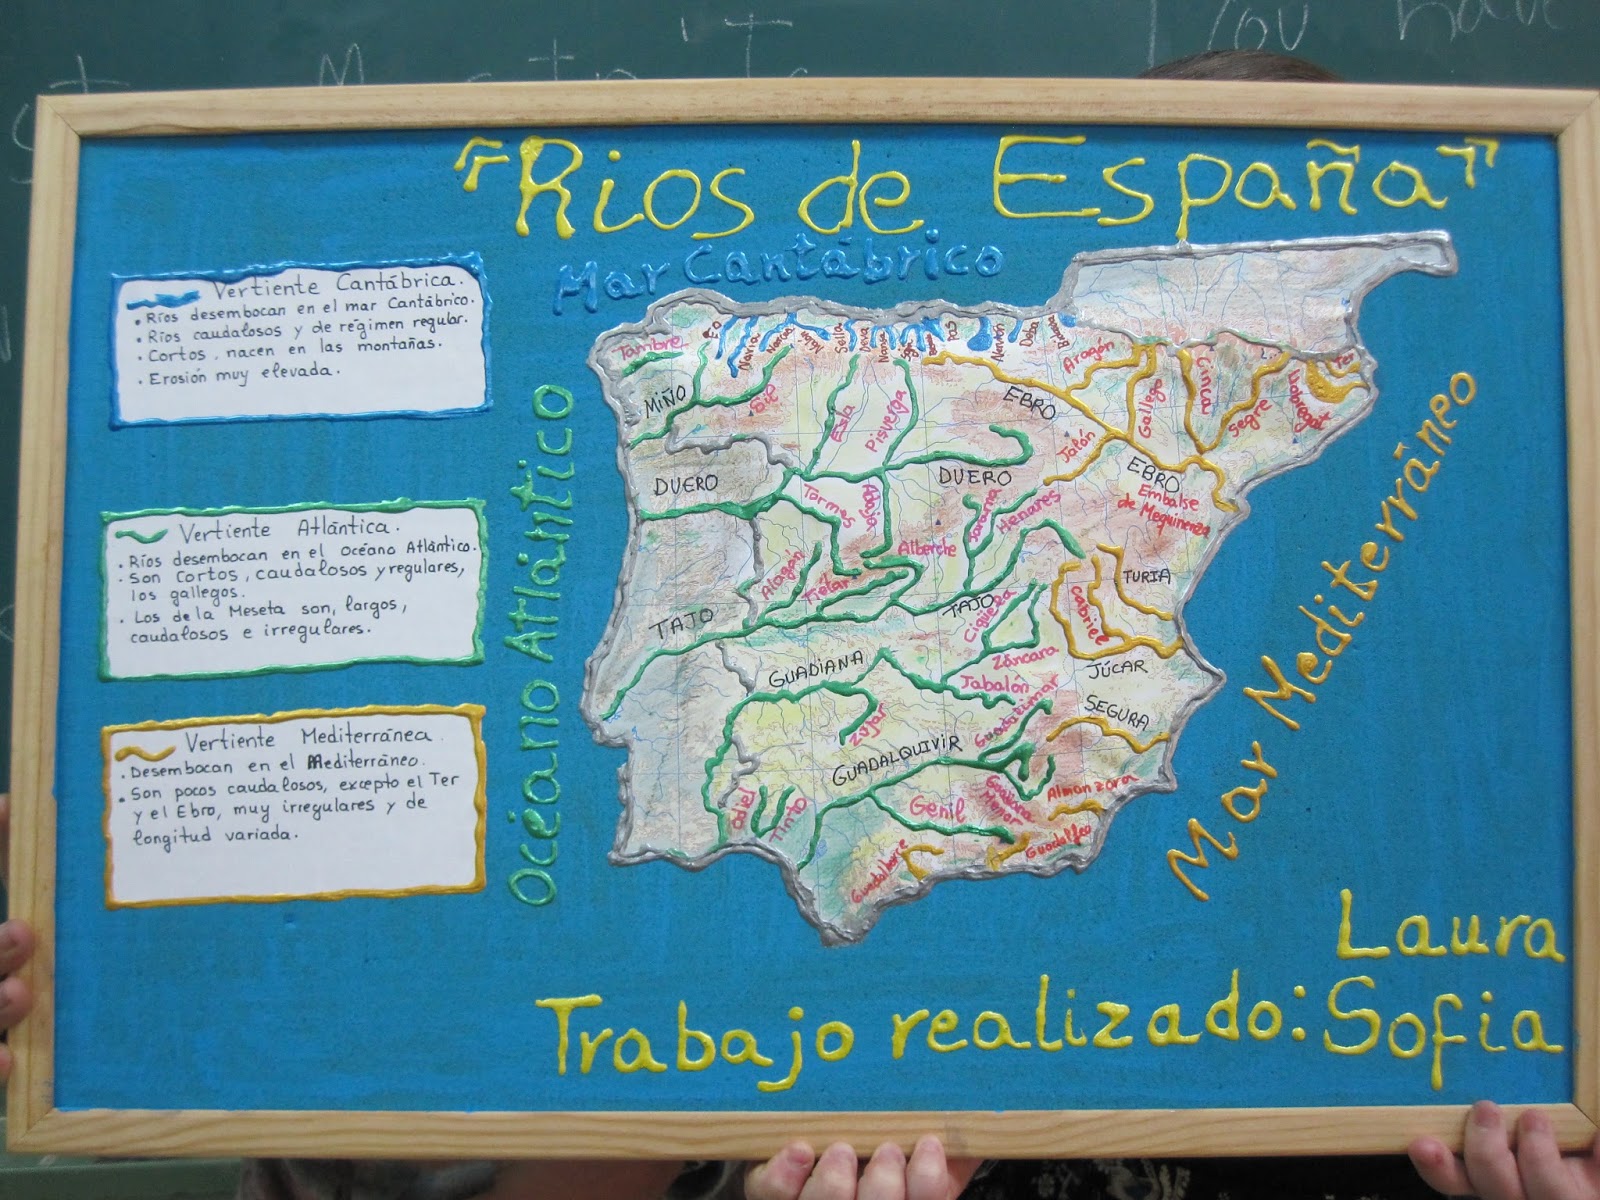 You have
"Rios de España"
Mar Cantábrico
Vertiente Cantábrica.
• Ríos desembocan en el mar Cantábrico.
• Ríos caudalosos y de régimen regular.
• Cortos, nacen en las montañas.
• Erosión muy elevada.
Vertiente Atlántica.
• Ríos desembocan en el océano Atlántico.
• Son cortos, caudalosos y regulares,
los gallegos.
• Los de la Meseta son, largos,
caudalosos e irregulares.
Vertiente Mediterránea.
• Desembocan en el Mediterráneo.
• Son pocos caudalosos, excepto el Ter
y el Ebro, muy irregulares y de
longitud variada.
Océano Atlántico
Tambre
Eo
Navia
Sella
Nansa
Pas
Nervión
Deba
MIÑO
Sil
Esla
Pisuerga
EBRO
Aragón
Gallego
Cinca
Segre
Llobregat
Ter
DUERO
DUERO
Jalón
EBRO
Embalse
de Mequinenza
Tormes
Adaja
Jarama
Henares
Alberche
Alagón
Tietar
TAJO
TAJO
Cigüela
Cabriel
TURIA
GUADIANA
Záncara
Jabalón
JÚCAR
Zújar
Guadalimar
SEGURA
GUADALQUIVIR
Odiel
Tinto
Genil
Guadiana
Menor
Almanzora
Guadalhorce
Guadalfeo
Mar Mediterráneo
Trabajo realizado:
Laura
Sofia